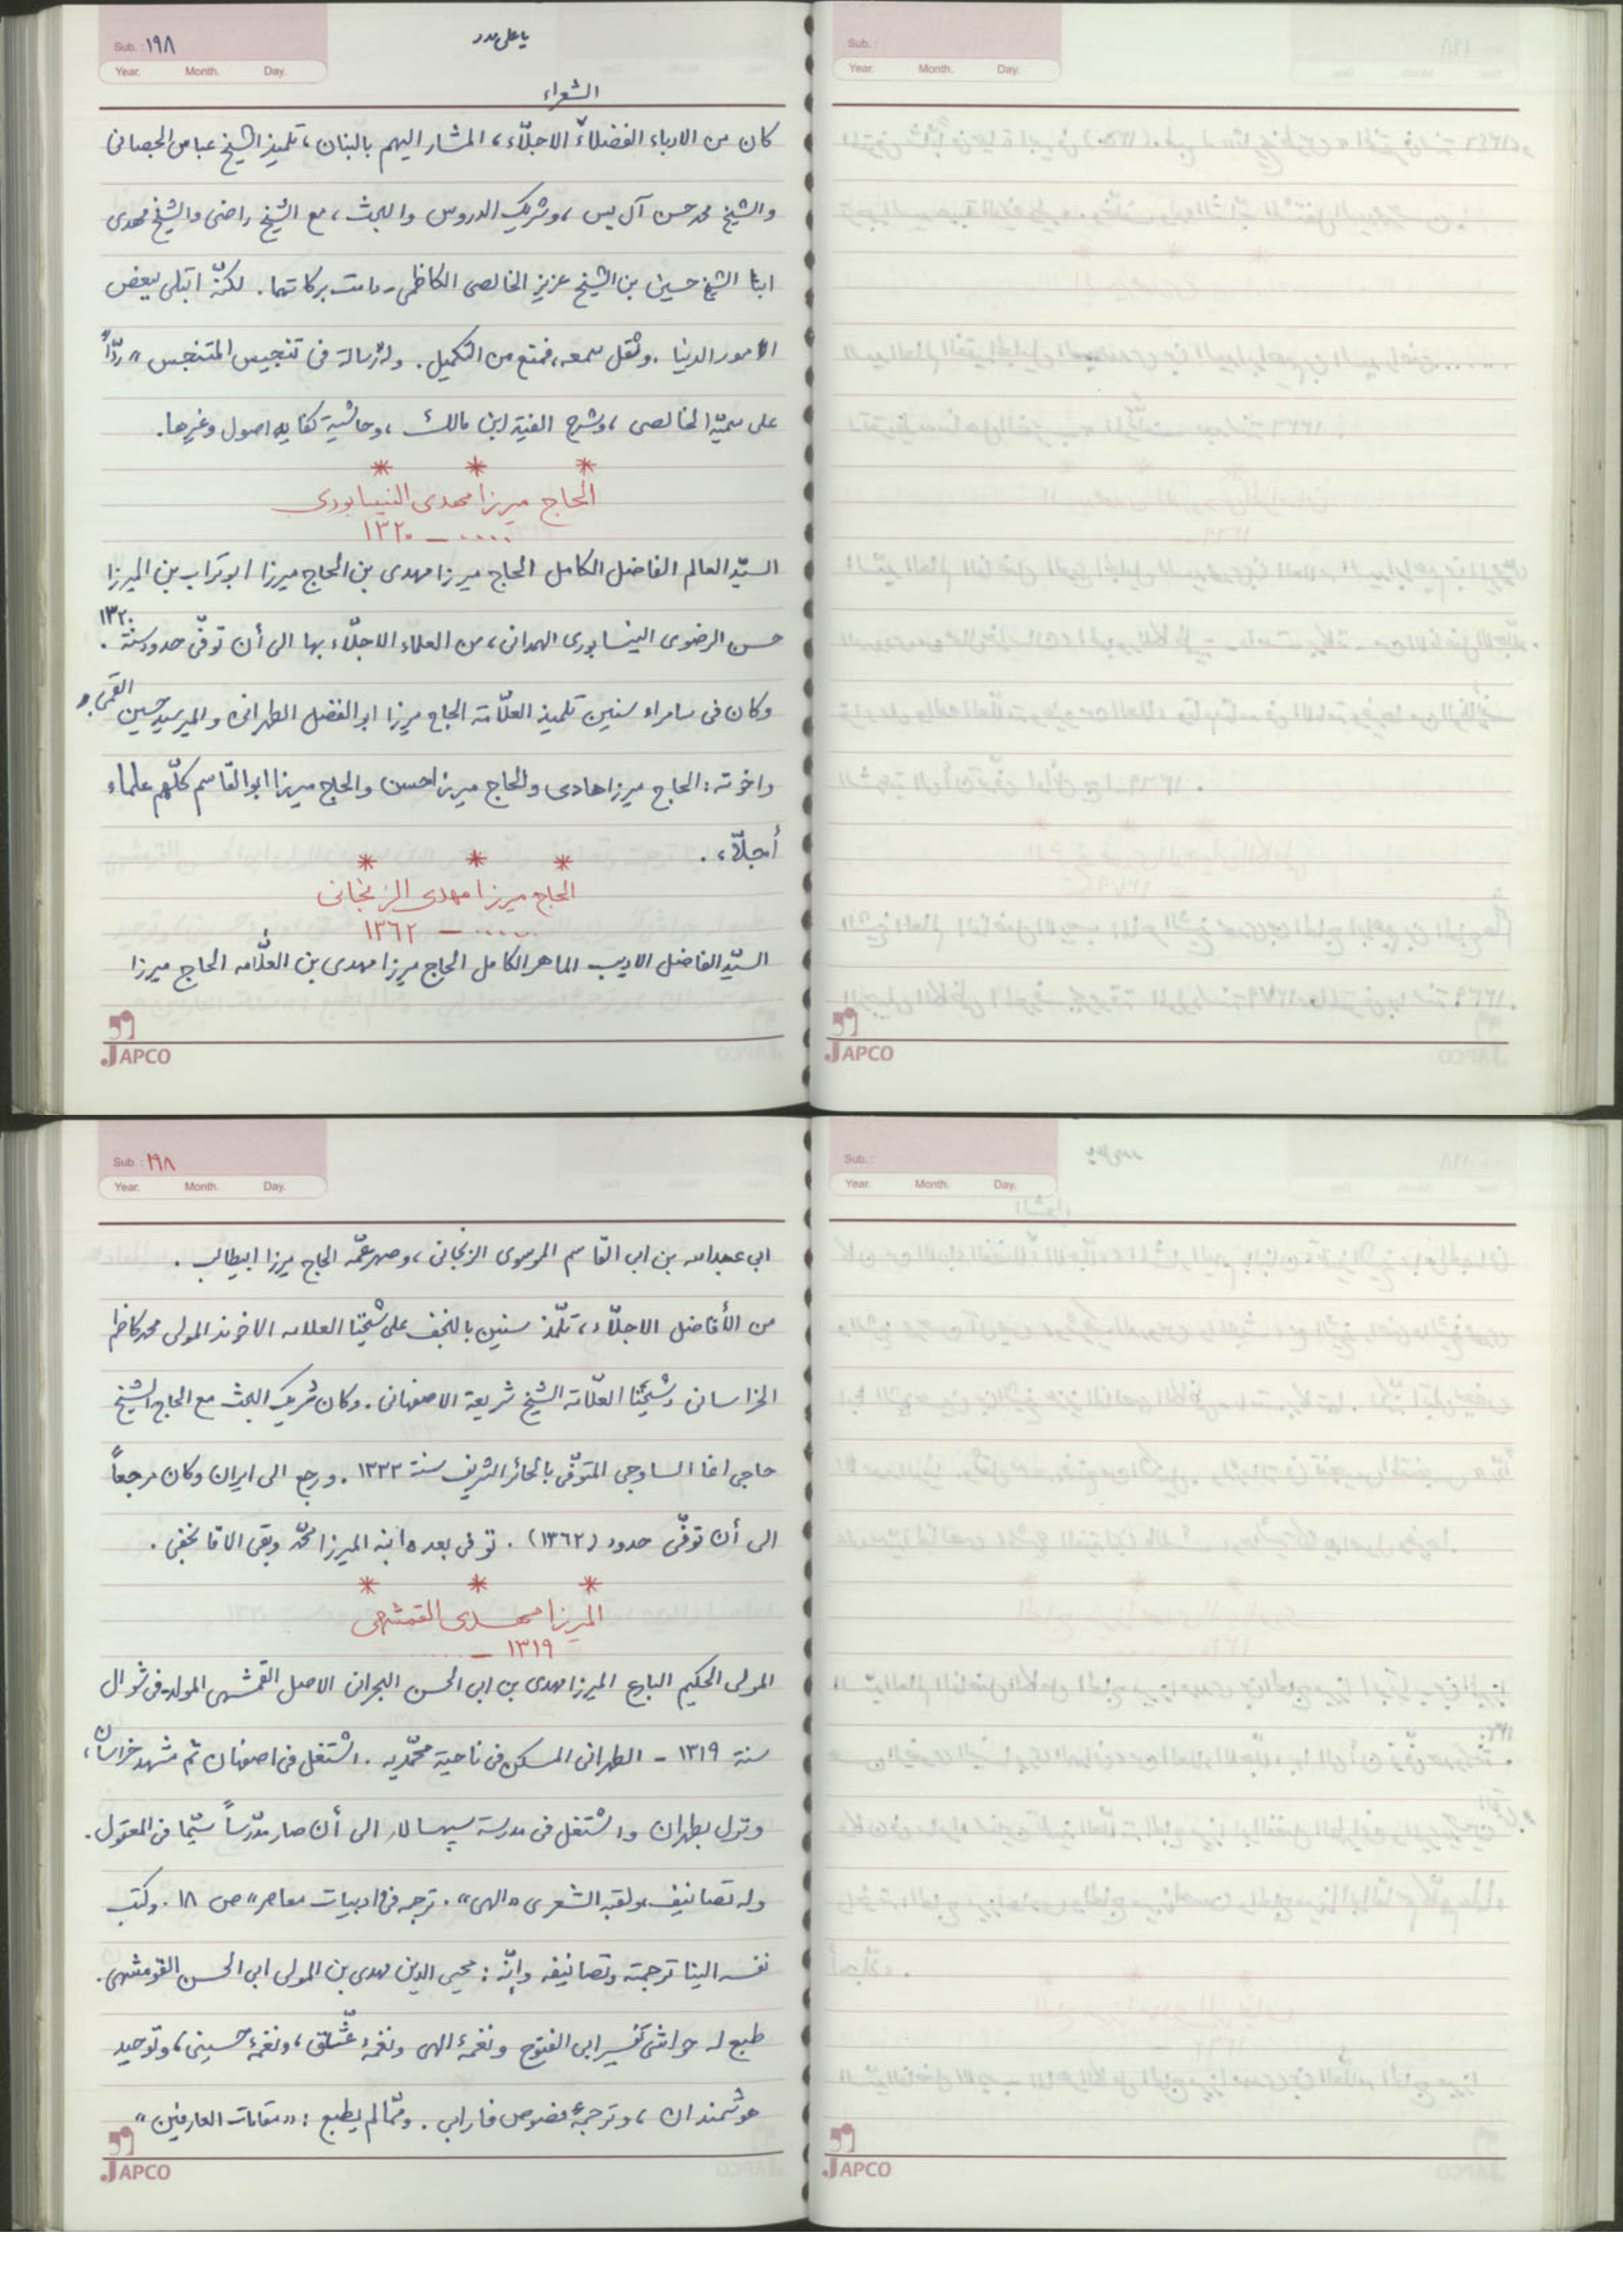 يا علی مدد
Sub.: ١٩٨
Year. Month. Day.
الشعراء
كان من الادباء الفضلاء الاجلّاء، المشار اليهم بالبنان، تلميذ الشيخ عباس الجصانی
والشيخ محمد حسن آل يس، وشريك الدروس والبحث، مع الشيخ راضی والشيخ مهدی
ابنا الشيخ حسين بن الشيخ عزيز الخالصی الكاظمی - دامت بركاتهما. لكنّه ابتلی ببعض
الامور الدنيا. وثقل سمعه، فمنع من التكميل. وله رسالة فی تنجيس المتنجس" ردّاً
علی سميّه الخالصی، وشرح الفية ابن مالك، وحاشية كفايه اصول وغيرها.
* * *
الحاج ميرزا مهدی النيسابوری
..... - ١٣٢٠
السيّد العالم الفاضل الكامل الحاج ميرزا مهدی بن الحاج ميرزا ابو تراب بن الميرزا
حسن الرضوی النيسابوری الهمدانی، من العلماء الاجلّاء بها الی أن توفّی حدود سنة ١٣٢٠.
وكان فی سامراء سنين تلميذ العلّامة الحاج ميرزا ابوالفضل الطهرانی والمير سيد حسين القمی.
واخوته: الحاج ميرزا هادی والحاج ميرزا حسن والحاج ميرزا ابوالقاسم كلّهم علماء
أجلّاء.
* * *
الحاج ميرزا مهدی الزنجانی
..... - ١٣٦٢
السيّد الفاضل الاديب الماهر الكامل الحاج ميرزا مهدی بن العلّامه الحاج ميرزا
JAPCO
Sub.:
Year. Month. Day.
JAPCO
Sub.: ١٩٨
Year. Month. Day.
ابی عبدالله بن ابی القاسم الموسوی الزنجانی، وصهر عمّه الحاج ميرزا ابيطالب.
من الأفاضل الاجلّاء، تلمّذ سنين بالنجف علی شيخنا العلامه الاخوند المولی محمد كاظم
الخراسانی وشيخنا العلّامة الشيخ شريعة الاصفهانی. وكان شريك البحث مع الحاج الشيخ
حاجی اغا الساوجی المتوفّی بالحائر الشريف سنة ١٣٣٢. ورجع الی ايران وكان مرجعاً
الی أن توفّی حدود (١٣٦٢). توفی بعده ابنه الميرزا محمّد وبقی الاقا نجفی.
* * *
الميرزا مهدی القمشهی
١٣١٩ - .....
المولی الحكيم البارع الميرزا مهدی بن ابی الحسن البحرانی الاصل القمشهی المولد فی شوال
سنة ١٣١٩ - الطهرانی المسكن فی ناحية محمّديه. اشتغل فی اصفهان ثم مشهد خراسان،
ونزل بطهران واشتغل فی مدرسة سپهسالار الی أن صار مدّرساً سيّما فی المعقول.
وله تصانيف ولقبه الشعری «الهی». ترجمه فی «ادبيات معاصر» ص ١٨. وكتب
نفسه الينا ترجمته وتصانيفه وإنّه: محيی الدين مهدی بن المولی ابی الحسن القومشهی.
طبع له حواشی تفسير ابی الفتوح ونغمۀ الهی ونغمۀ عشّاق، ونغمۀ حسينی، وتوحيد
هوشمندان، وترجمۀ فصوص فارابی. وممّا لم يطبع: «مقامات العارفين»
JAPCO
Sub.:
Year. Month. Day.
JAPCO